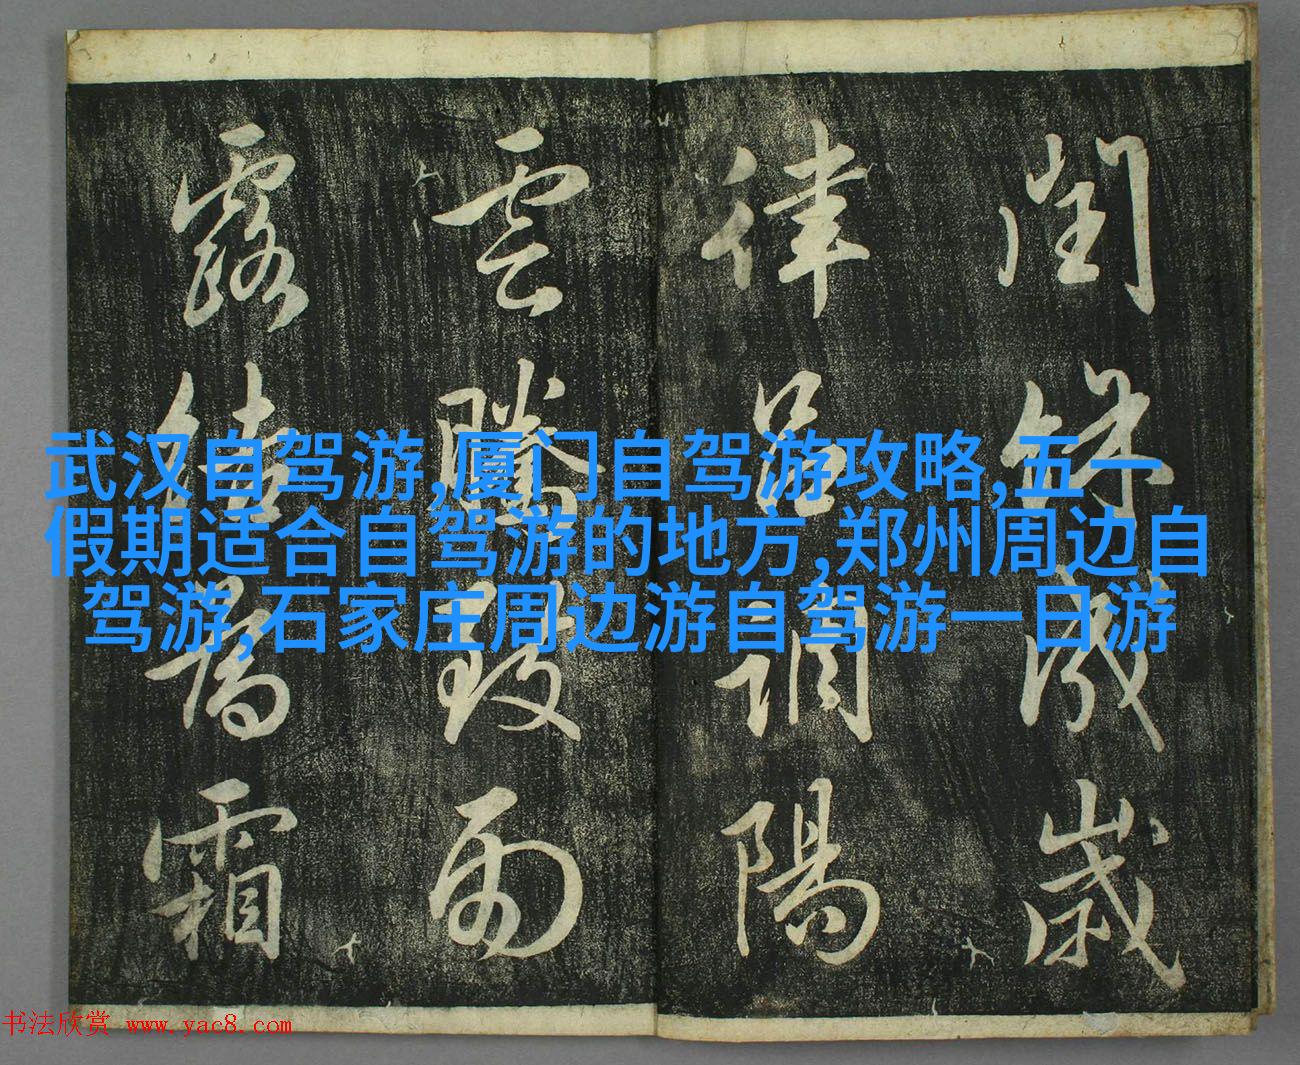 閏餘成歲
律呂調陽
雲騰致雨
露結為霜
武汉自驾游,厦门自驾游攻略,五一
假期适合自驾游的地方,郑州周边自
驾游,石家庄周边游自驾游一日游
书法欣赏 www.yac8.com